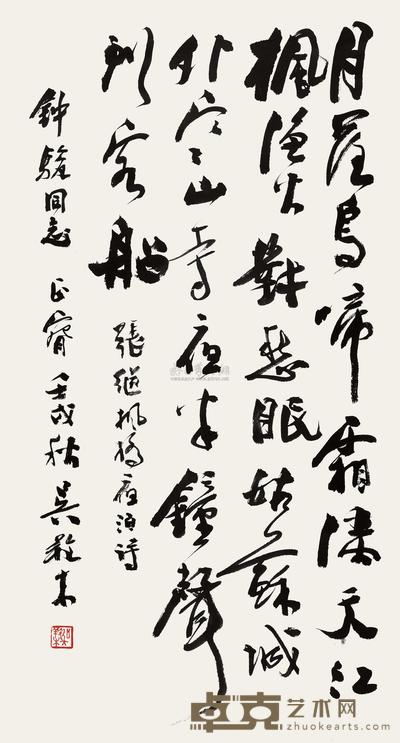 月落烏啼霜滿天江
楓漁火對愁眠姑蘇城
外寒山寺夜半鐘聲
到客船
張繼楓橋夜泊詩
同志 正 壬戌秋 吳䍩木
卓克艺术网
zhuokearts.com